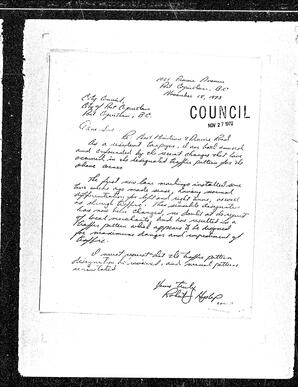 Port Coquitlam, B.C.
November 18, 1973
COUNCIL
NOV 27 1973
City Council,
City of Port Coquitlam
Port Coquitlam, B.C.
Dear Sirs
As a resident taxpayer, I am both amused
and by the recent changes that have
occurred in the designated traffic pattern for the
above
The first new lane markings installed some
weeks ago made sense, having
differentiation for left and right turns, as well
as through traffic. This sensible designation
has now been changed, no doubt at the request
of local merchants, and has resulted in a
traffic pattern which appears to be designed
for maximum danger and impediment of
traffic.
I must request that the traffic pattern
designation be reviewed, and normal patterns
reinstated
Yours truly,
Robert